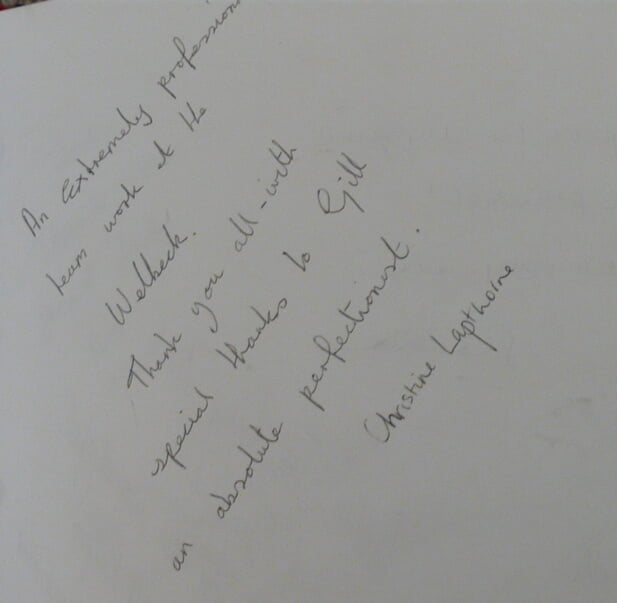 An Extremely professional
team work at the
Welbeck.
Thank you all - with
special thanks to Gill
an absolute perfectionist.
Christine Lapthorne